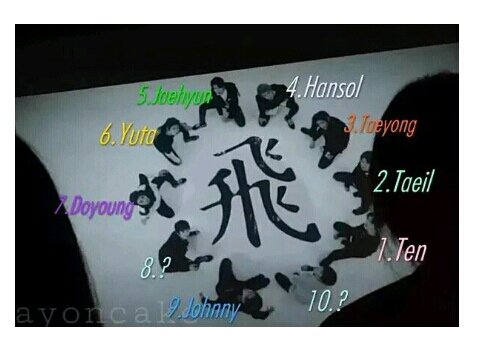 5.Jaehyun
4.Hansol
6.Yuta
3.Taeyong
2.Taeil
7.Doyoung
飛
1.Ten
8.?
9.Johnny
10.?
ayoncake